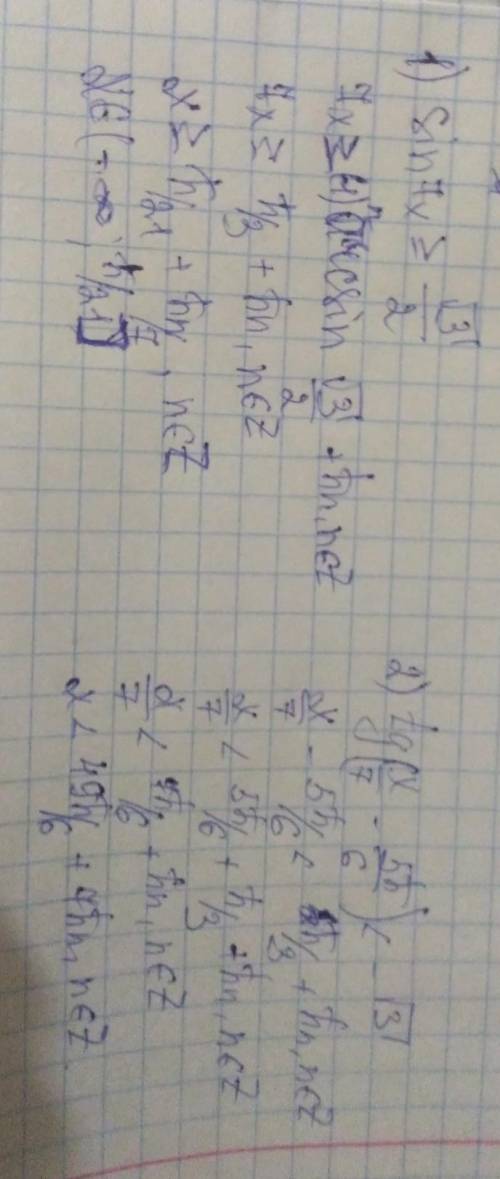 1) sin 7x ≥ √3/2
7x ≥ (-1)ⁿ arcsin √3/2 + πn, n∈Z
7x ≥ π/3 + πn, n∈Z
x ≥ π/21 + πn/7, n∈Z
x∈(-∞; π/21]
2) tg(x/7 - 5π/6) < -√3
x/7 - 5π/6 < π/3 + πn, n∈Z
x/7 < 5π/6 + π/3 + πn, n∈Z
x/7 < 7π/6 + πn, n∈Z
x < 49π/6 + 7πn, n∈Z.